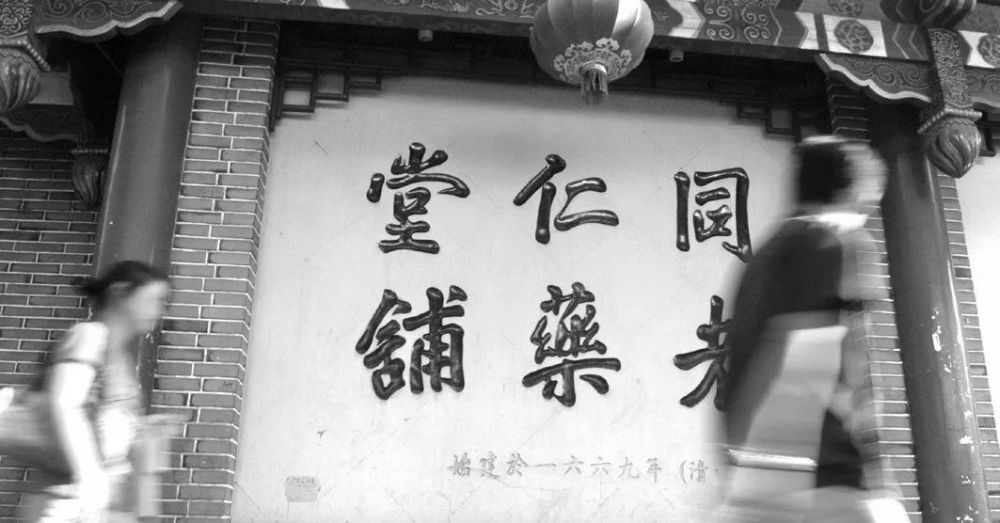 同仁堂
老藥舖
始建於一六六九年 (清